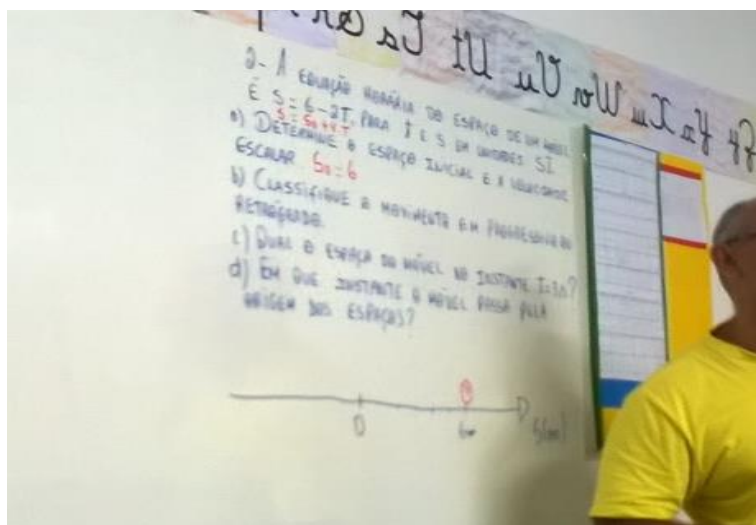 sT tU uV vW wX xY yZ
2- A EQUAÇÃO HORÁRIA DO ESPAÇO DE UM MÓVEL
É S = 6 - 2T, PARA T E S EM UNIDADES SI.
S = S0 + V.T
a) DETERMINE O ESPAÇO INICIAL E A VELOCIDADE
ESCALAR S0 = 6
b) CLASSIFIQUE O MOVIMENTO EM PROGRESSIVO OU
RETRÓGRADO.
c) QUAL O ESPAÇO DO MÓVEL NO INSTANTE
d) EM QUE INSTANTE O MÓVEL PASSA PELA
ORIGEM DOS ESPAÇOS?
0 6m S(m)